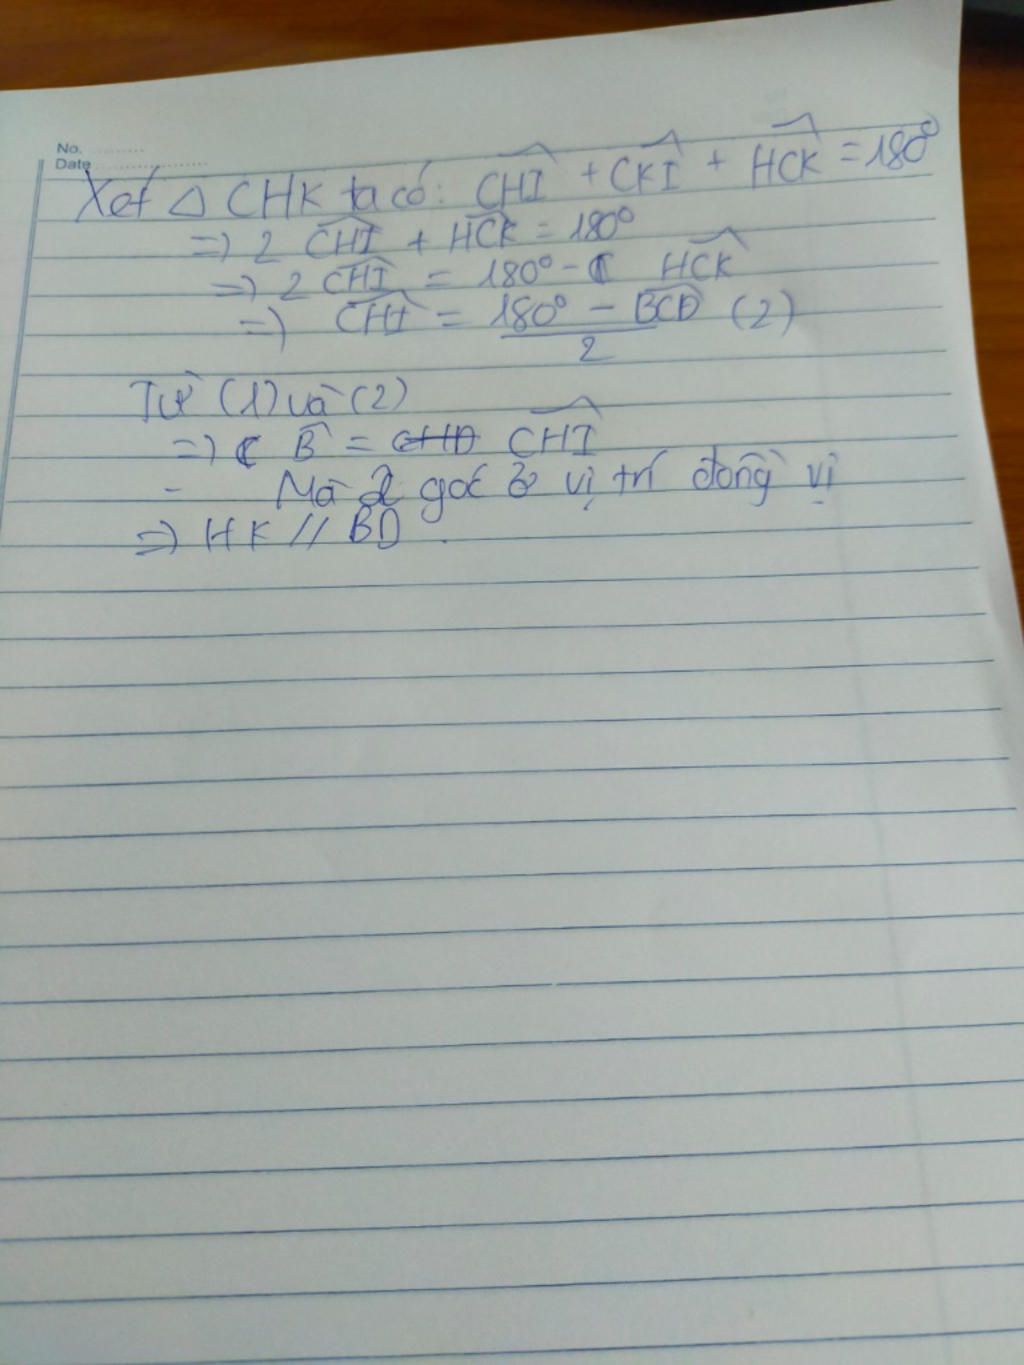 No. ..........
Date ....................
Xét △ CHK ta có: CHI + CKI + HCK = 180°
=> 2 CHI + HCK = 180°
=> 2 CHI = 180° - HCK
=> CHI = 180° - BCD (2)
2
Từ (1) và (2)
=> B = CHD CHI
- Mà 2 góc ở vị trí đồng vị
=> HK // BD .